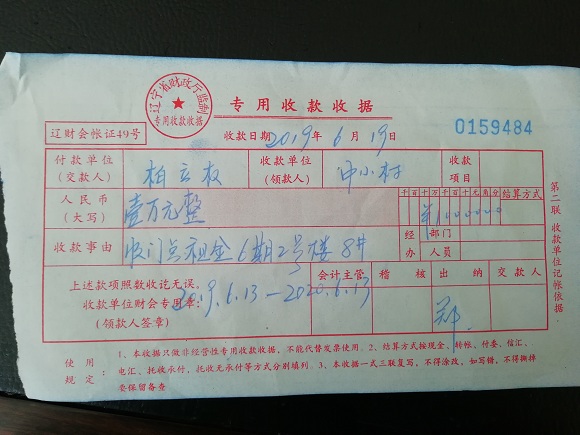 辽宁省财政厅监制
专用收款收据
专用收款收据
辽财会帐证49号
收款日期2019年6月19日
0159484
付款单位
(交款人)
柏立权
收款单位
(领款人)
中小村
收款
项目
人民币
(大写)
壹万元整
千百十万千百十元角分
结算方式
¥1000000
收款事由
收门点租金6期2号楼8#
经办
部门
人员
上述款项照数收讫无误。
收款单位财会专用章:
(领款人签章)
2019.6.13—2020.6.13
会计主管
稽核
出纳
交款人
郑
第二联 收款单位记帐依据
使用规定:
1、本收据只做非经营性专用收款收据,不能代替发票使用。2、结算方式按现金、转帐、付委、信汇、
电汇、托收承付、托收无承付等方式分别填列。3、本收据一式三联复写,不得涂改,如写错,不得撕掉
要保留备查